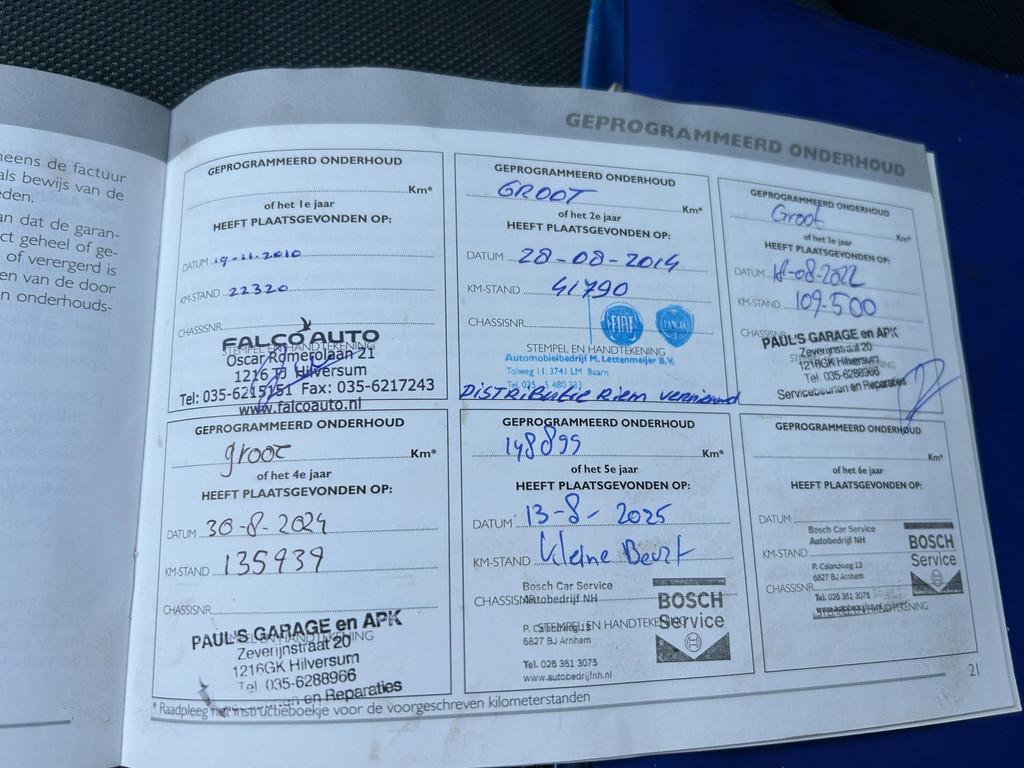 neens de factuur
als bewijs van de
eden.
an dat de garan-
ct geheel of ge-
of verergerd is
en van de door
n onderhouds-
GEPROGRAMMEERD ONDERHOUD
GEPROGRAMMEERD ONDERHOUD
Km*
of het 1e jaar
HEEFT PLAATSGEVONDEN OP:
DATUM 19-11-2010
KM-STAND 22320
CHASSISNR.
FALCO AUTO
STEMPEL EN HANDTEKENING
Oscar Romerolaan 21
1216 TJ Hilversum
Tel: 035-6215151 Fax: 035-6217243
www.falcoauto.nl
GEPROGRAMMEERD ONDERHOUD
GROOT
Km*
of het 2e jaar
HEEFT PLAATSGEVONDEN OP:
DATUM 28-08-2014
KM-STAND 41790
CHASSISNR.
FIAT LANCIA
STEMPEL EN HANDTEKENING
Automobielbedrijf M. Lettenmeijer B.V.
Tolweg 11, 3741 LM Baarn
Tel. 035 - 5 480 333
DISTRibutie Riem vernieuwd
GEPROGRAMMEERD ONDERHOUD
Groot
Km*
of het 3e jaar
HEEFT PLAATSGEVONDEN OP:
DATUM 18-08-2022
KM-STAND 109-500
CHASSISNR.
PAUL'S GARAGE en APK
Zeverijnstraat 20
1216GK Hilversum
Tel. 035-6288966
Servicebeurten en Reparaties
GEPROGRAMMEERD ONDERHOUD
groot
Km*
of het 4e jaar
HEEFT PLAATSGEVONDEN OP:
DATUM 30-8-2024
KM-STAND 135939
CHASSISNR.
PAUL'S GARAGE en APK
STEMPEL EN HANDTEKENING
Zeverijnstraat 20
1216GK Hilversum
Tel. 035-6288966
en Reparaties
GEPROGRAMMEERD ONDERHOUD
148899
Km*
of het 5e jaar
HEEFT PLAATSGEVONDEN OP:
DATUM 13-8-2025
KM-STAND Kleine Beurt
CHASSISNR.
Bosch Car Service
Autobedrijf NH
BOSCH
Service
STEMPEL EN HANDTEKENING
6827 BJ Arnhem
Tel. 026 361 3075
www.autobedrijfnh.nl
GEPROGRAMMEERD ONDERHOUD
Km*
of het 6e jaar
HEEFT PLAATSGEVONDEN OP:
DATUM
KM-STAND
CHASSISNR.
Bosch Car Service
Autobedrijf NH
BOSCH
Service
P. Calandweg 13
6827 BJ Arnhem
Tel. 026 361 3075
www.autobedrijfnh.nl
STEMPEL EN HANDTEKENING
* Raadpleeg het instructieboekje voor de voorgeschreven kilometerstanden
21